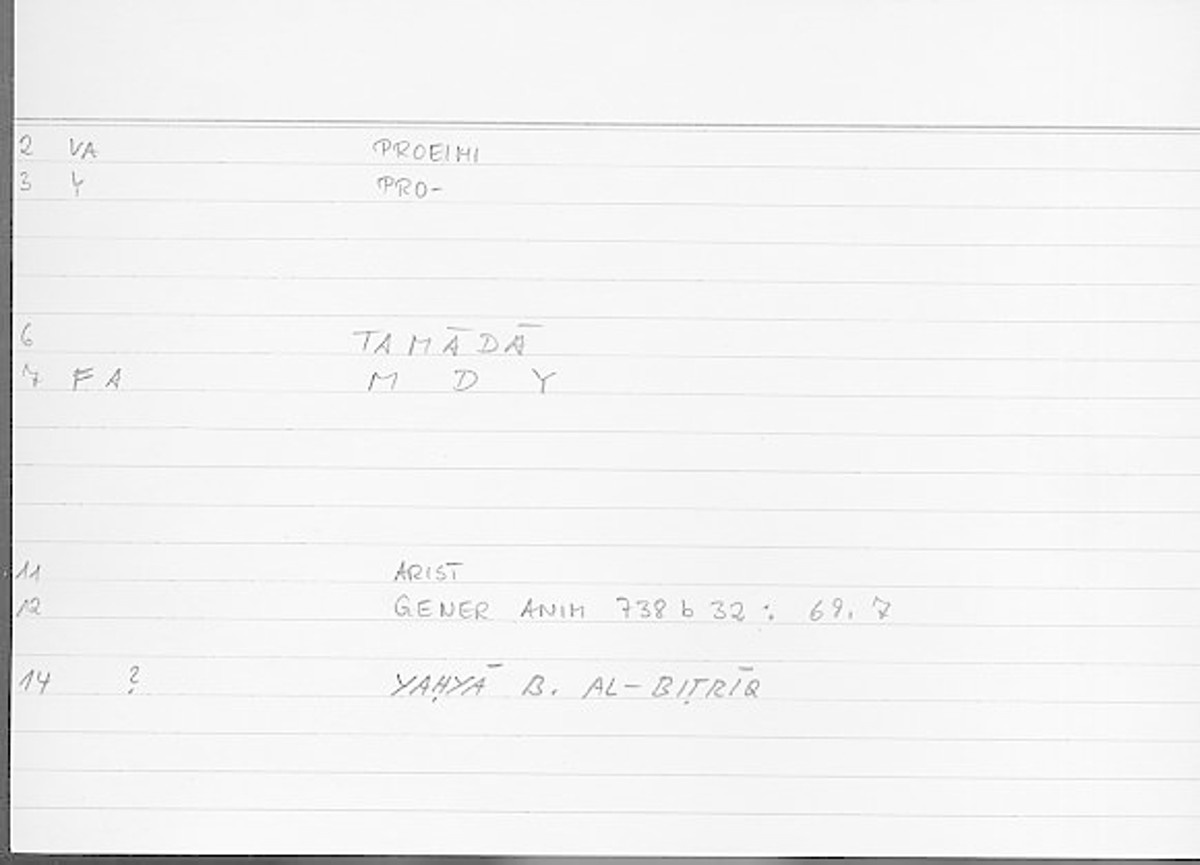 2 VA PROEIMI
3 Y PRO-
6 TAMĀDĀ
7 F A M D Y
11 ARIST
12 GENER ANIM 738 b 32 : 69. 7
14 ? YAḤYĀ B. AL-BIṬRĪQ